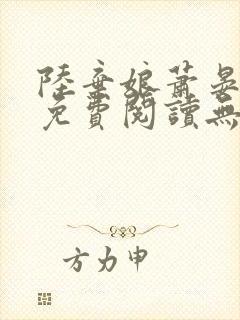 陸棄娘蕭晏
免費閱讀無
方力申